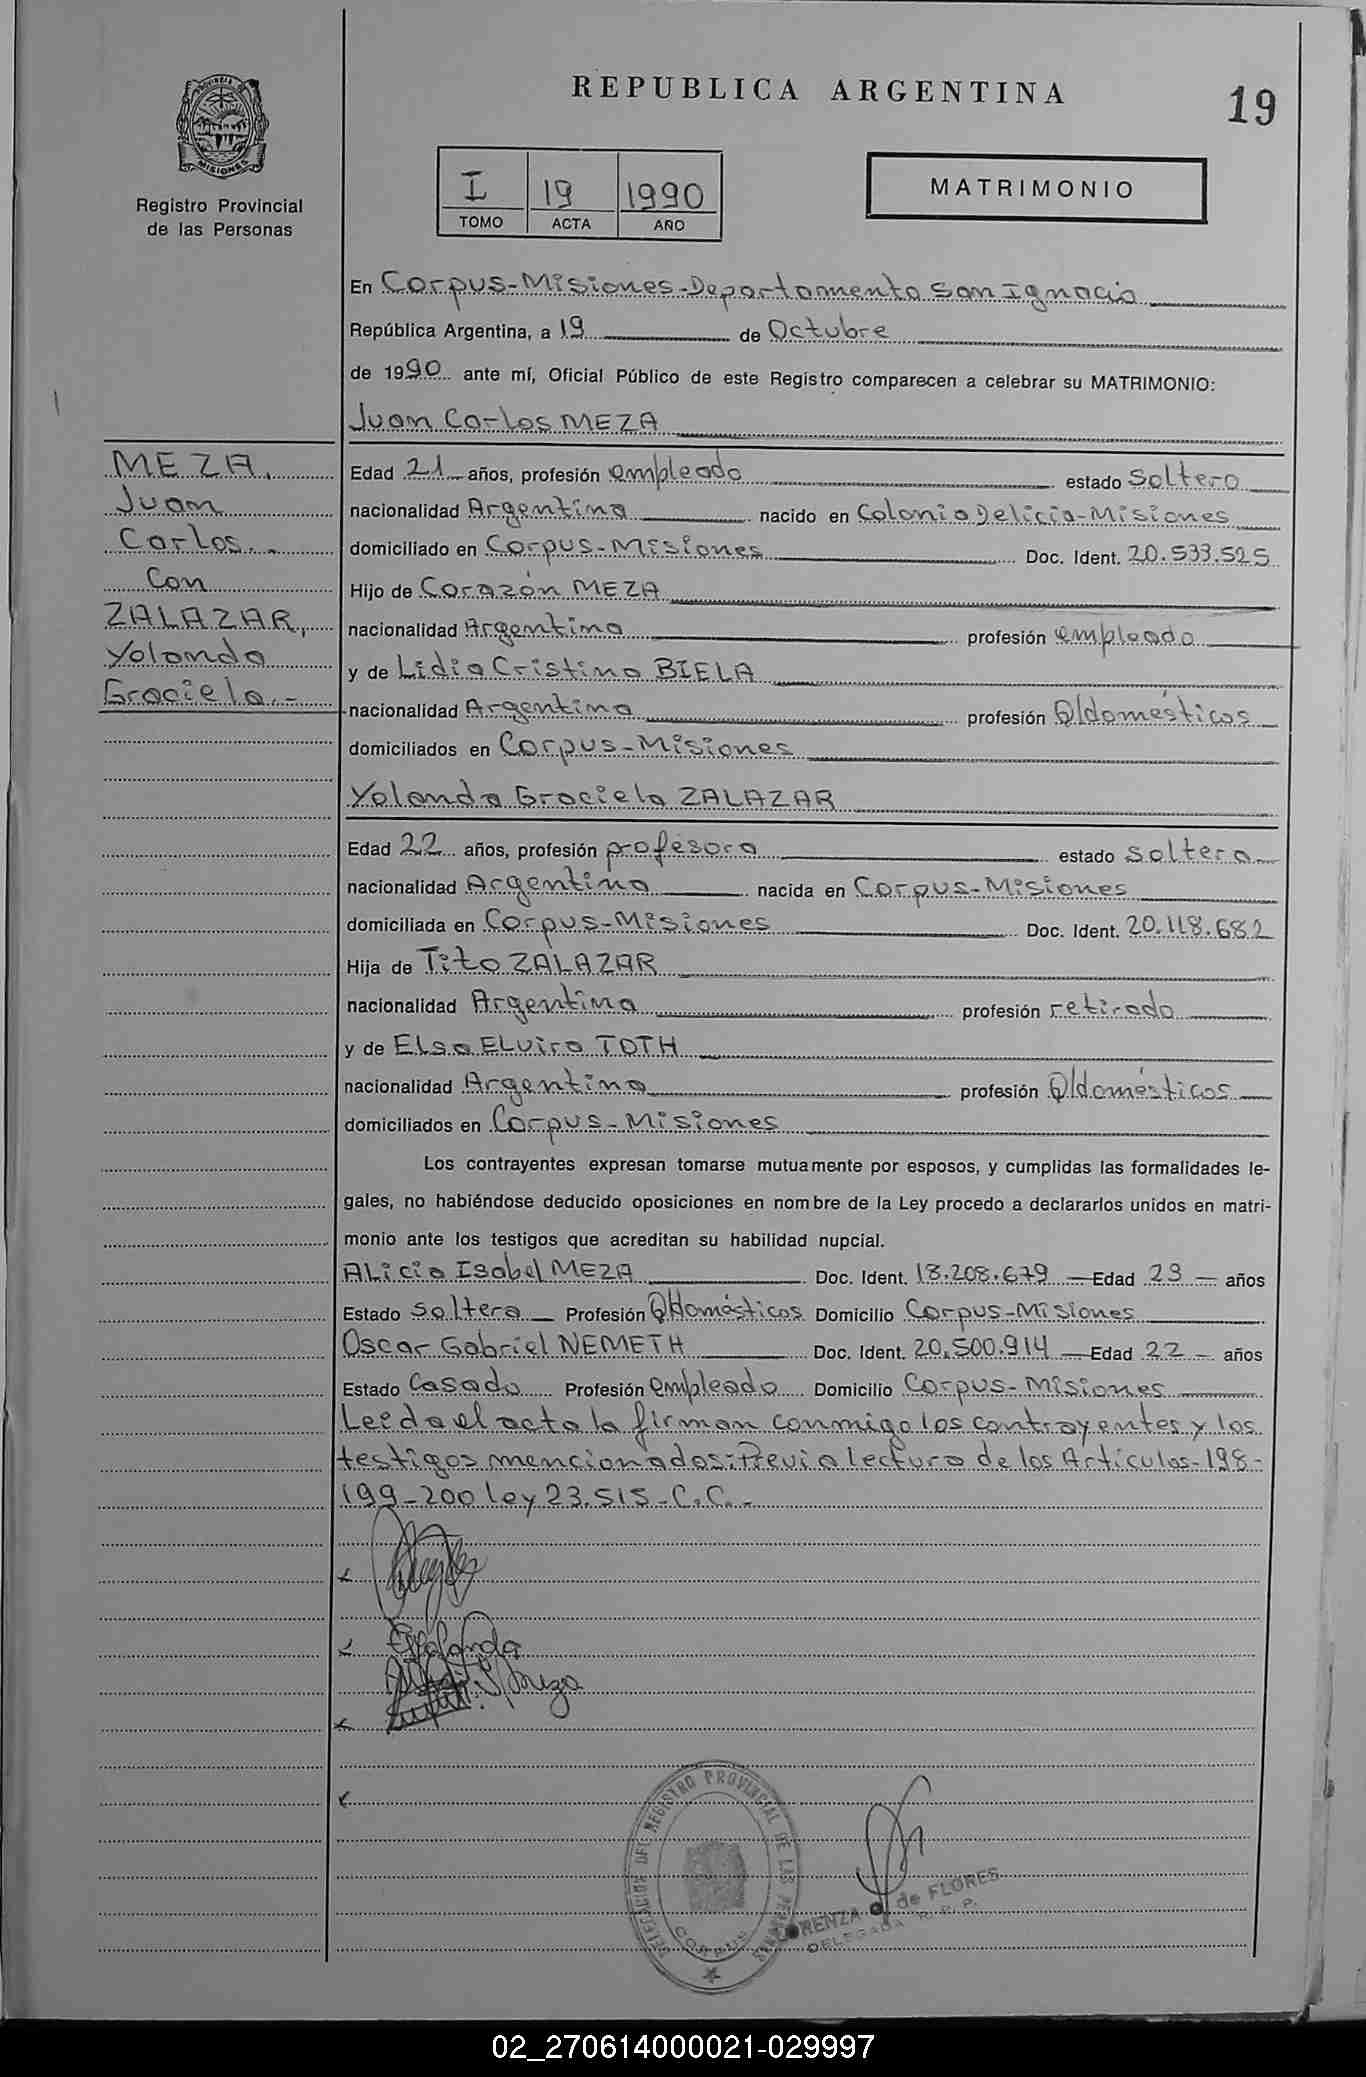 REPUBLICA ARGENTINA
19
PROVINCIA DE
MISIONES
Registro Provincial
de las Personas
I 19 1990
TOMO ACTA AÑO
MATRIMONIO
En Corpus-Misiones-Departamento San Ignacio
República Argentina, a 19 de Octubre
de 1990 ante mí, Oficial Público de este Registro comparecen a celebrar su MATRIMONIO:
Juan Carlos MEZA
MEZA,
Juan
Carlos.-
Con
ZALAZAR,
Yolanda
Graciela.-
Edad 21 años, profesión empleado estado Soltero
nacionalidad Argentina nacido en Colonia Delicia-Misiones
domiciliado en Corpus-Misiones Doc. Ident. 20.533.525
Hijo de Corazón MEZA
nacionalidad Argentina profesión empleado
y de Lidia Cristina BIELA
nacionalidad Argentina profesión Q/domésticos
domiciliados en Corpus-Misiones
Yolanda Graciela ZALAZAR
Edad 22 años, profesión profesora estado soltera
nacionalidad Argentina nacida en Corpus-Misiones
domiciliada en Corpus-Misiones Doc. Ident. 20.118.682
Hija de Tito ZALAZAR
nacionalidad Argentina profesión retirado
y de Elsa ELvira TOTH
nacionalidad Argentina profesión Q/domésticos
domiciliados en Corpus-Misiones
Los contrayentes expresan tomarse mutuamente por esposos, y cumplidas las formalidades le-
gales, no habiéndose deducido oposiciones en nombre de la Ley procedo a declararlos unidos en matri-
monio ante los testigos que acreditan su habilidad nupcial.
ALicia Isabel MEZA Doc. Ident. 18.208.679 Edad 23 años
Estado soltera Profesión Q/domésticos Domicilio Corpus-Misiones
Oscar Gabriel NEMETH Doc. Ident. 20.500.914 Edad 22 años
Estado Casado Profesión empleado Domicilio Corpus-Misiones
Leeda el acta la firman conmigo los contrayentes y los
testigos mencionados:Previa lectura de los Artículos-198-
199-200 ley 23.515-C.C.-
DELEGACION DEL REGISTRO PROVINCIAL DE LAS PERSONAS
CORPUS
LORENZA de FLORES
DELEGADA R. P. P.
02_270614000021-029997